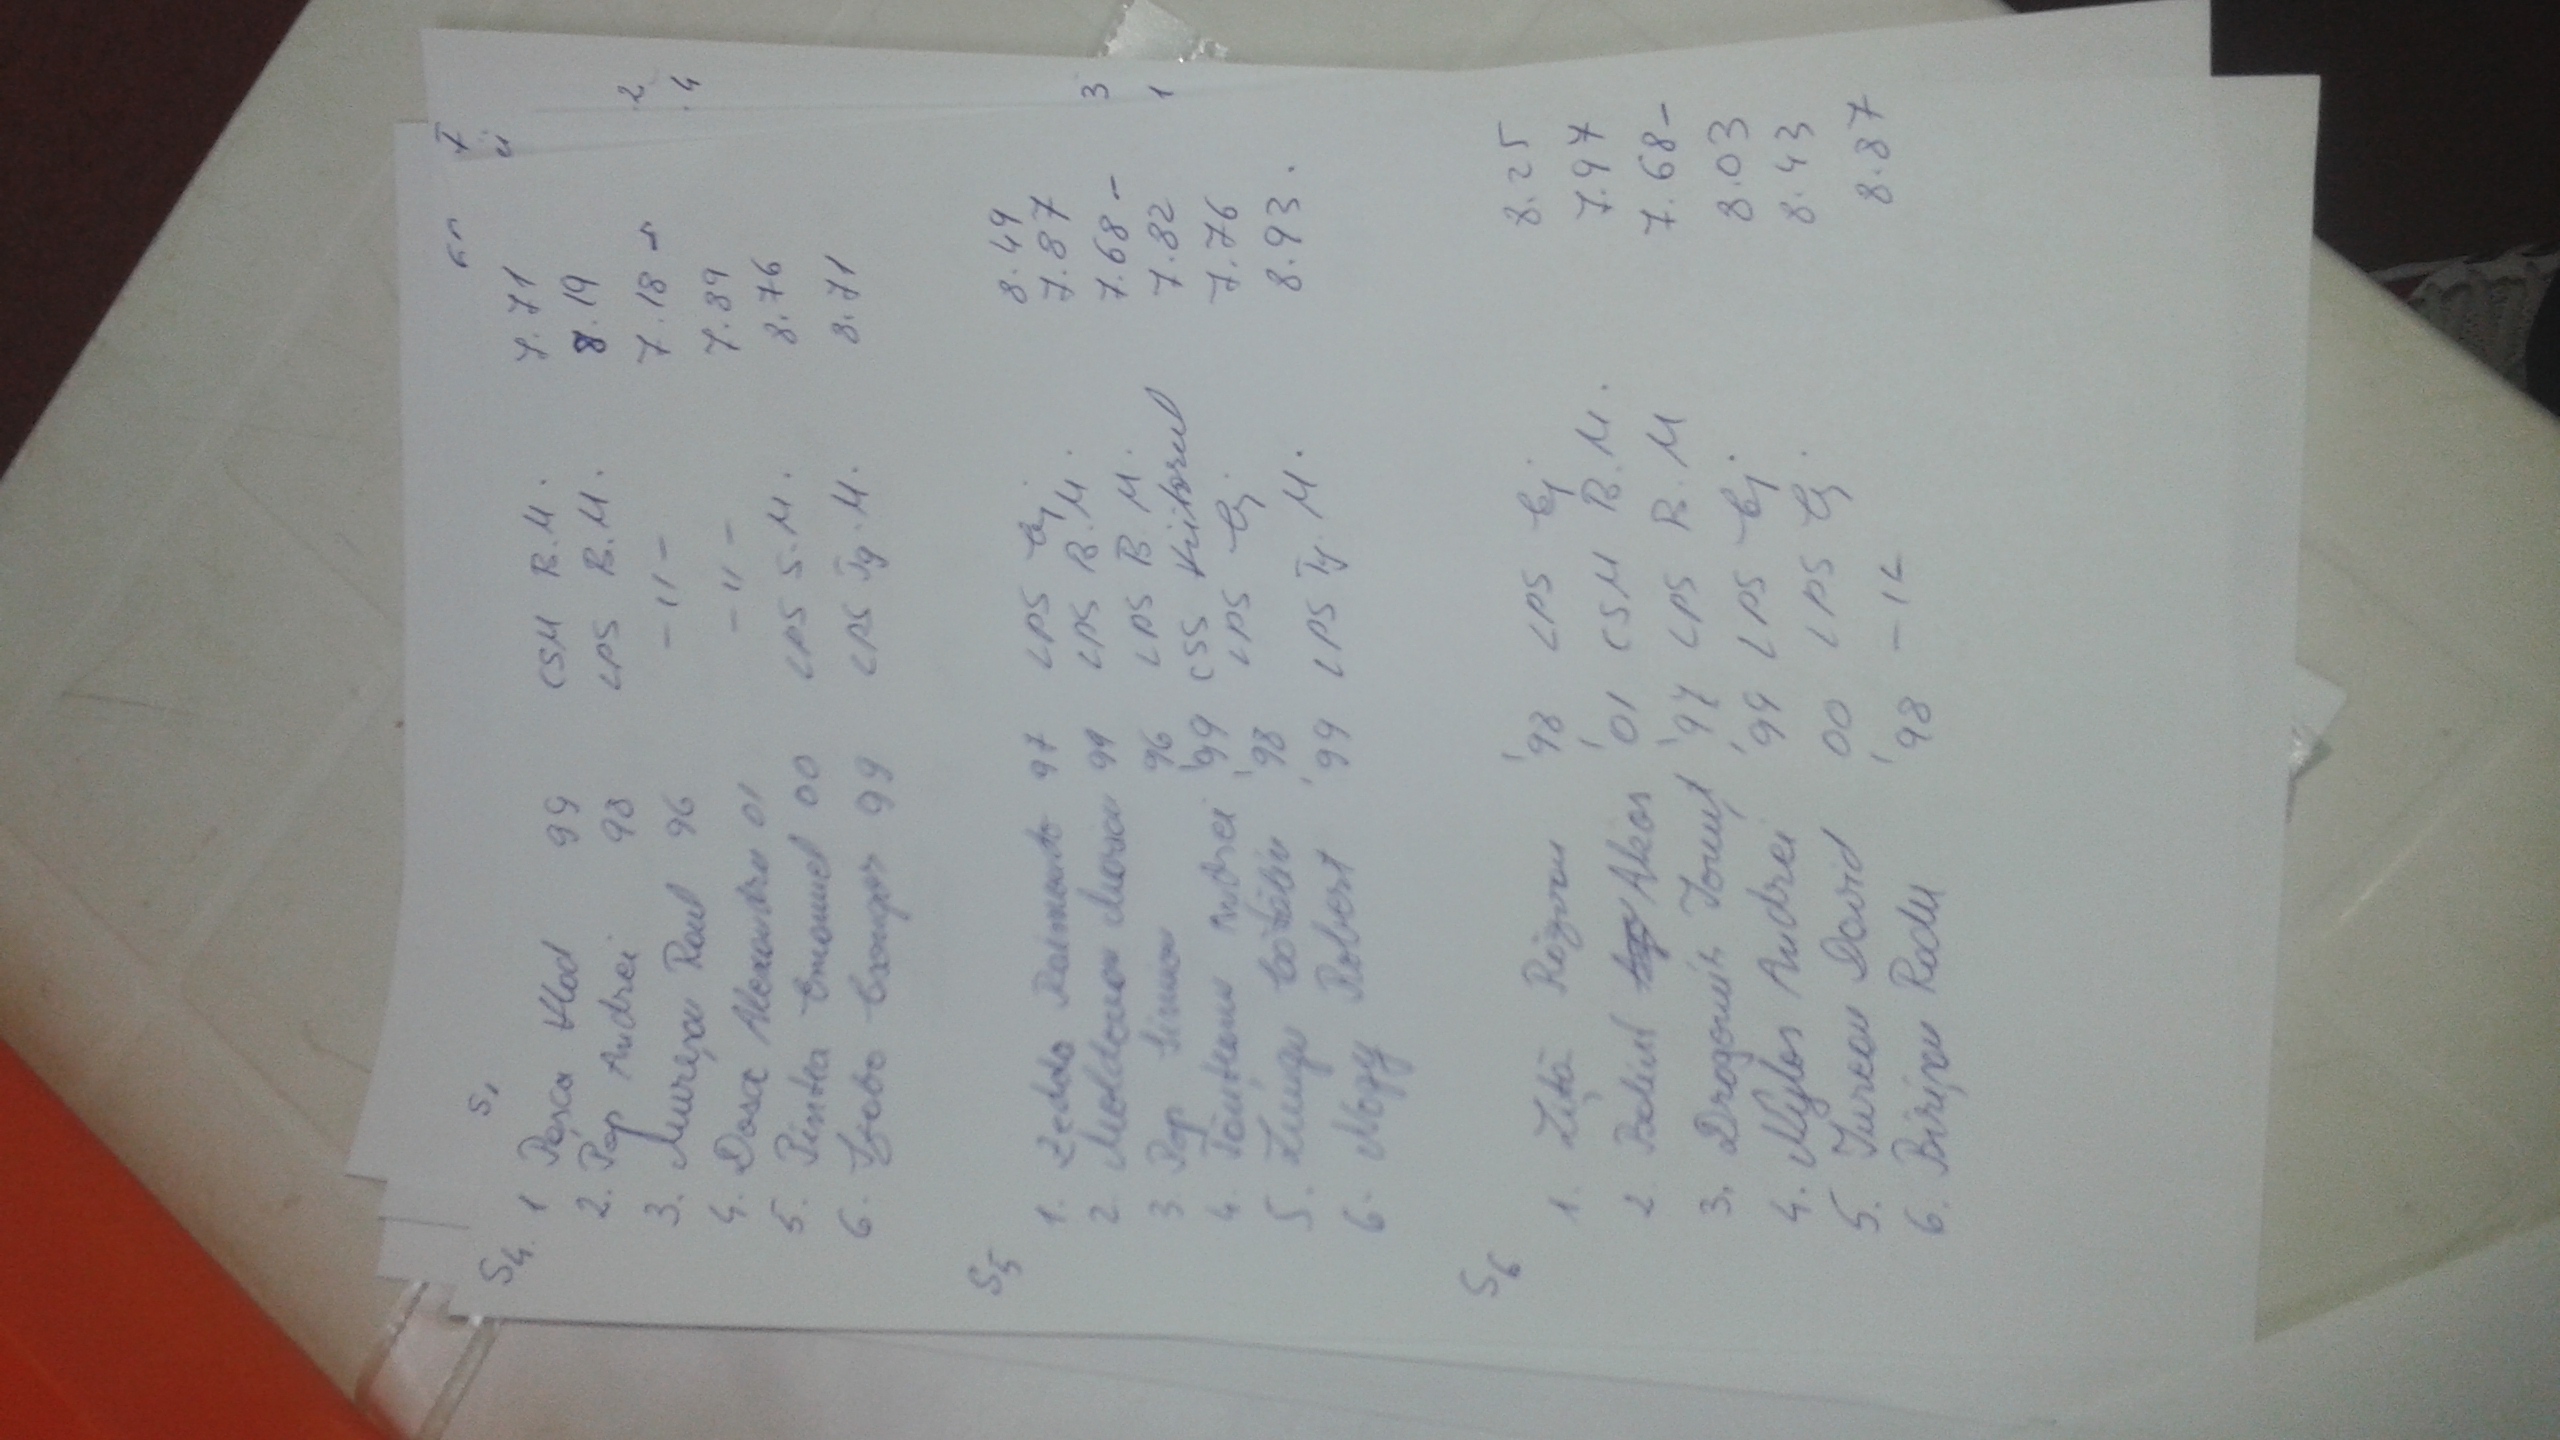 S4.
1 Pașca Vlad 99 CSM B.M. 7.71
2. Pop Andrei 98 LPS B.M. 8.19
3. Mureșan Raul 96 -11- 7.18 2
4. Dosa Alexandru 01 -11- 7.89 4
5. Pintea Emanuel 00 LPS S.M. 8.76
6. Szabo Csongor 99 LPS Tg. M. 8.71
S5
1. Raimondo 97 LPS Cj 8.49
2 Moldovan Marian 99 LPS B.M. 7.87
3 Pop Simion 96 LPS B M. 7.68 - 3
4. Andrei '99 CSS Viitorul 7.82 1
5. Lungu Cătălin '98 LPS Cj 7.76
6. Nagy Robert '99 LPS Tg M. 8.93.
S6
1. Liță Răzvan '98 LPS Cj. 8.25
2 Balint Akos '01 CSM B.M. 7.97
3. Dragomir Ionuț '97 LPS B. M 7.68 -
4. Andrei '99 LPS Cj 8.03
5. Turcan David 00 LPS Cj. 8.43
6. Birișan Radu '98 -11- 8.87